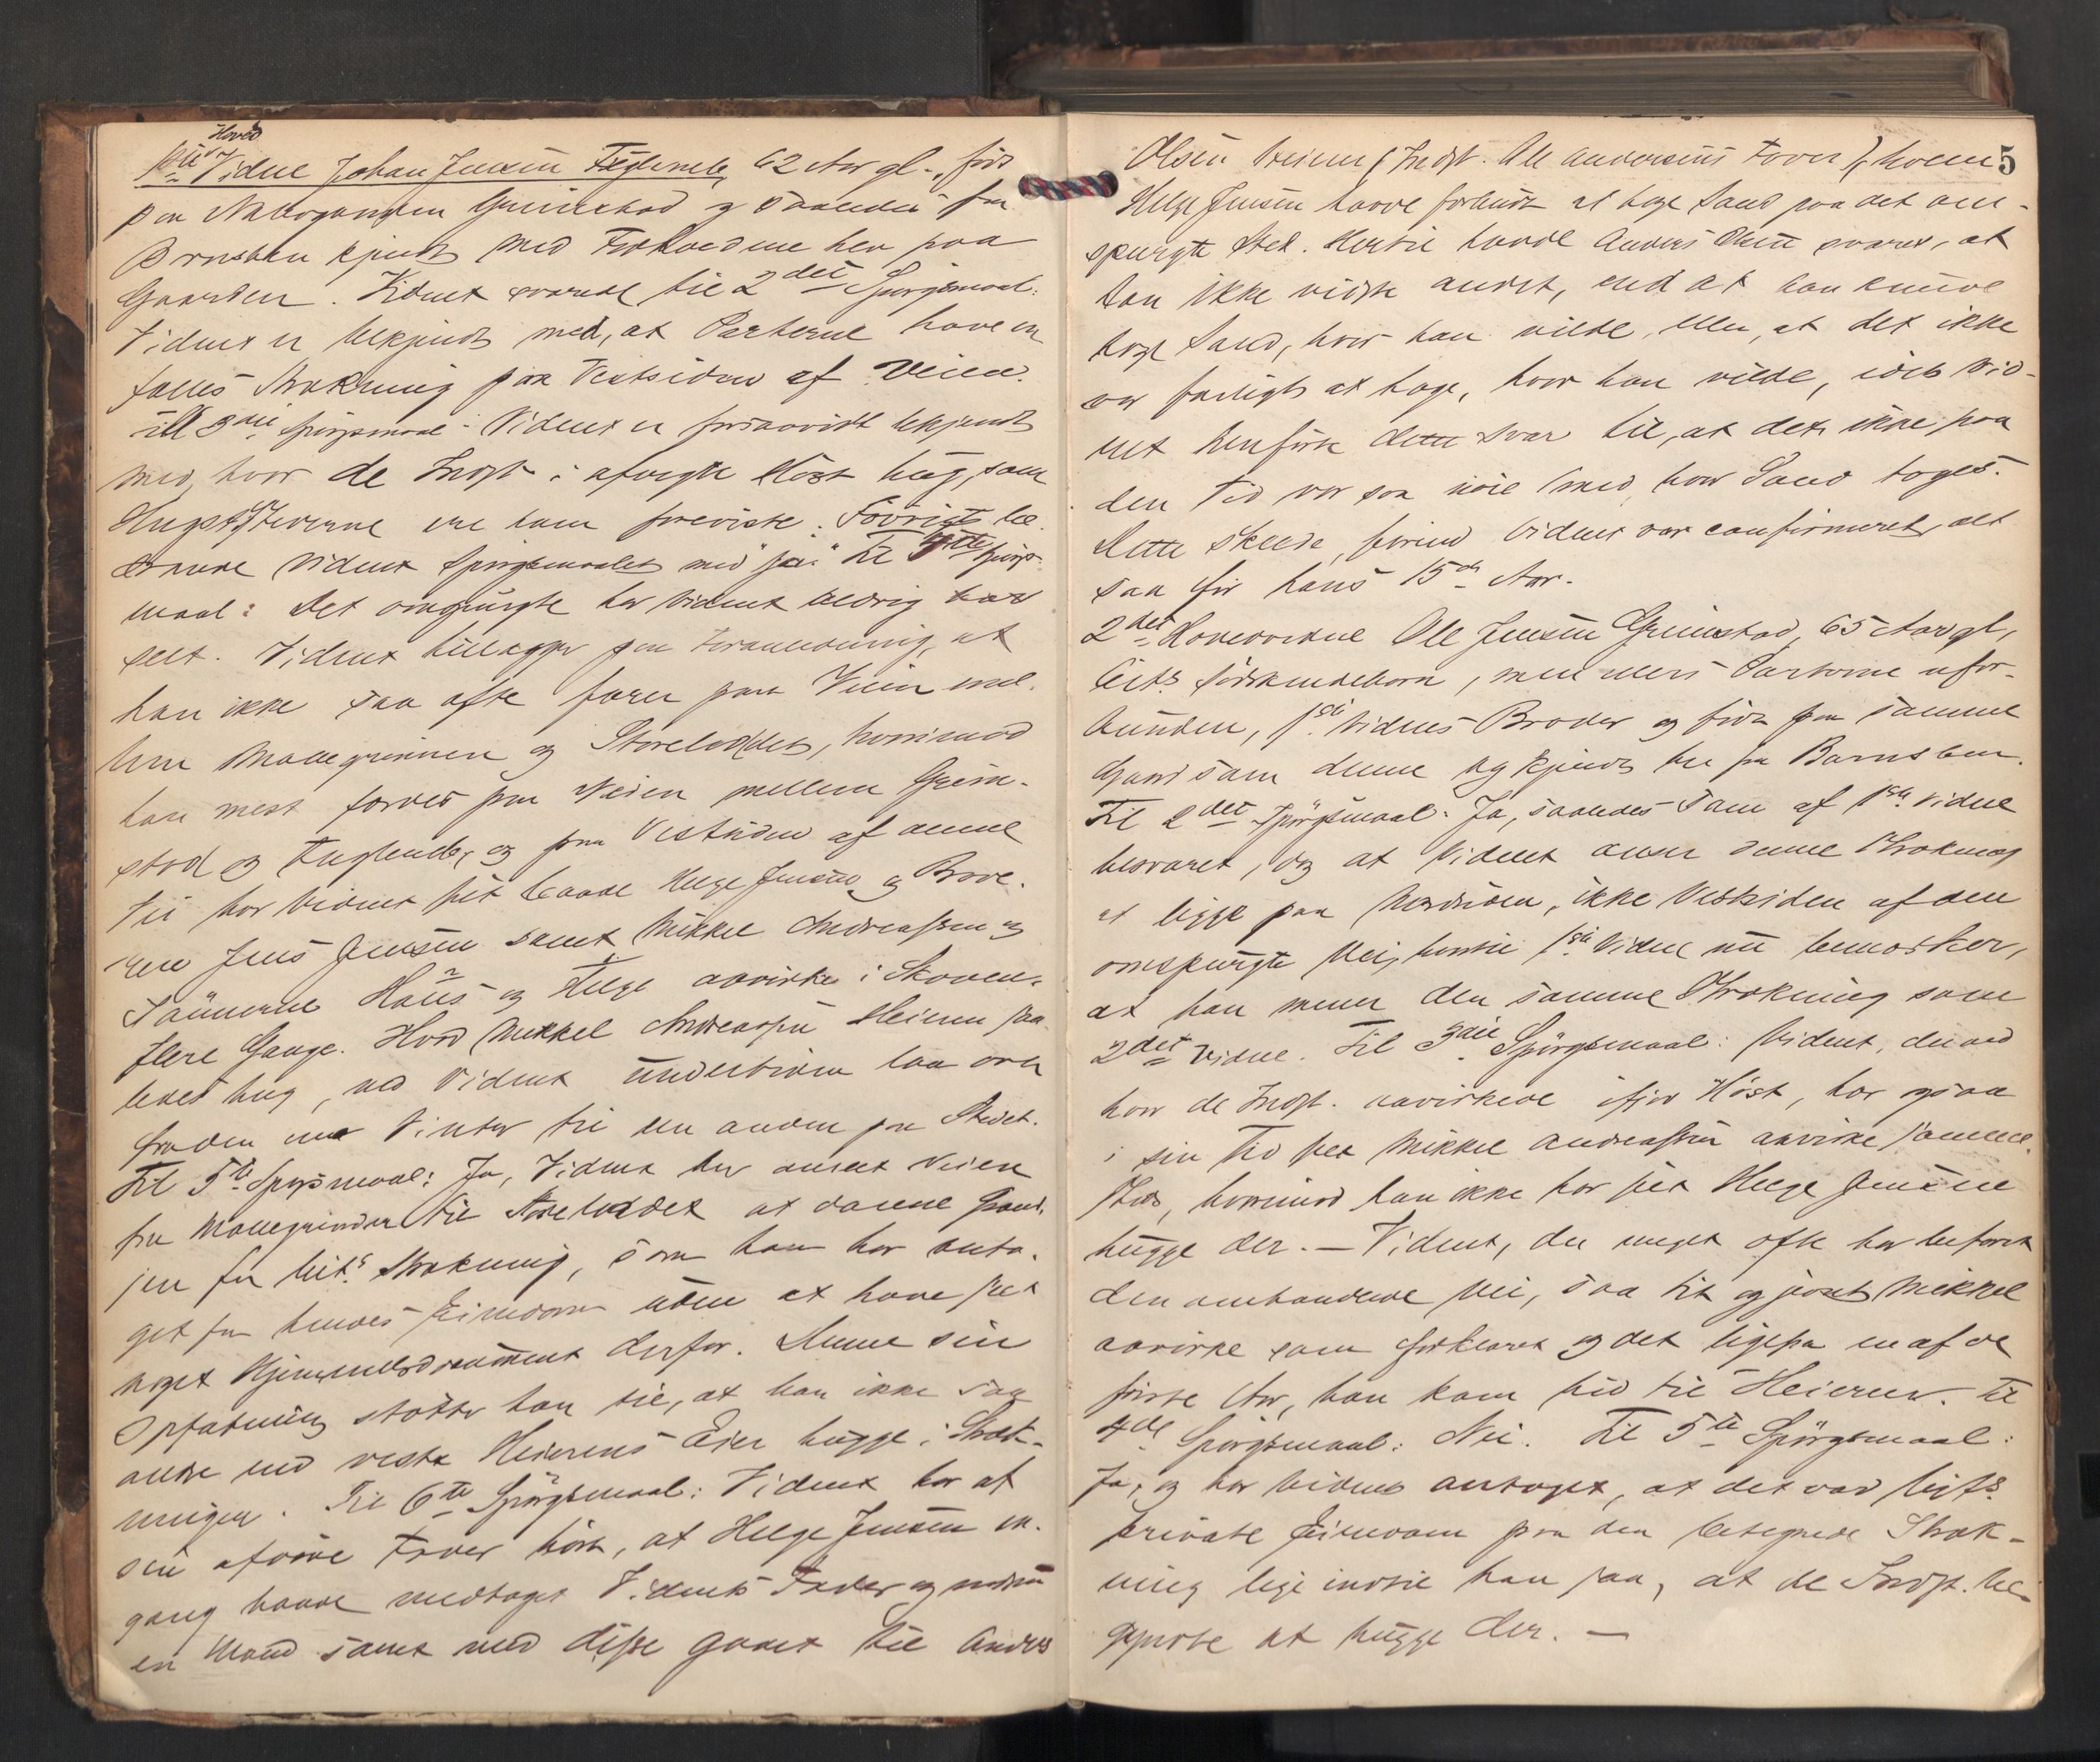 Hoved
1ste Vidne Johan Jensen Fugleneb, 62 Aar gl., født
paa Nabogaarden Grimstad og saaledes fra
Barnsben kjendt med Forholdene her paa
Gaarden. Vidnet svarede til 2det Spørgsmaal:
Vidnet er bekjendt med, at Parterne have en
fælles Strækning paa Vestsiden af Veien.
Til 3die Spørgsmaal: Vidnet er forsaavidt bekjendt
med, hvor de Indst. i afvigte Høst hug, som
Hugststederne ere ham foreviste. Forøvrigt be-
svarede Vidnet Spørgsmaalet med "ja". Til 4de Spørgs-
maal: Det omspurgte har Vidnet aldrig
seet. Vidnet tillægger paa Foranledning, at
han ikke saa ofte farer paa Veien mel-
lem Mællegrinnen og Storeleddet, hvorimod
han mest færdes paa Veien mellem Grim-
stad og Fugleneb, og paa Vestsiden af denne
Vei har Vidnet seet baade Helge Jensen og Bro-
ren Jens Jensen samt Mikkel Andreassen og
Sønnerne Hans og Helge avvirke i Skoven
flere Gange. Hvad Mikkel Andreassen Heieren saa-
ledes hug, ved Vidnet undertiden laa over
fra den ene Vinter til den anden paa Stedet.
Til 5te Spørsmaal: Ja, Vidnet har anseet Veien
fra Mællegrinden til Storeleddet at danne Grænd-
sen for Cit.s Strækning, som han har anta-
get for hendes Eiendom uden at have seet
noget Hjemmelsdocument derfor. Denne sin
Opfatning støtter han til, at han ikke saa
andre end vestre Heierens Eier hugge i Stræk-
ningen. Til 6te Spørgsmaal: Vidnet har af
sin afdøde Fader hørt, at Helge Jensen en-
gang havde medtaget Vidnets Fader og endnu
en Mand samt med disse gaaet til Anders
5
Olsen Heieren (Indst. Ole Andersens Fader), hvem
Helge Jensen havde forbudt at tage Sand paa det om-
spurgte Sted. Hertil havde Anders Olsen svaret, at
han ikke vidste andet, end at han kunde
tage Sand, hvor han vilde, eller, at det ikke
var farligt at tage, hvor han vilde, idet Vid-
net henførte dette Svar til, at det ikke paa
den Tid var saa nøie med, hvor Sand toges.
Dette skeede, førend Vidnet var confirmeret, alt-
saa før hans 15de Aar.
2det Hovedvidne Ole Jensen Grimstad, 65 Aar gl.,
Cit.s Sødskendebarn, men ellers Parterne ufor-
bunden, 1ste Vidnes Broder og født paa samme
Gaard som denne og kjendt her fra Barnsben.
Til 2det Spørgsmaal: Ja, saaledes som af 1ste Vidne
besvaret, dog at Vidnet anser denne Strækning
at ligge paa Nordsiden, ikke Vestsiden af den
omspurgte Vei, hvortil 1ste Vidne nu bemærker,
at han mener den samme Strækning som
2det Vidne. Til 3die Spørgsmaal: Vidnet, der ved
hvor de Indst. avvirkede ifjor Høst, har ogsaa
i sin Tid seet Mikkel Andreassen avvirke samme-
steds, hvorimod han ikke har seet Helge Jensen
hugge der. — Vidnet, der meget ofte har befaret
den omhandlede Vei, saa tit og jevnt Mikkel
avvirke som forklaret og det ligefra en af de
første Aar, han kom hid til Heieren. Til
4de Spørgsmaal: Nei. Til 5te Spørgsmaal:
Ja, og har Vidnet antaget, at det var Cit.s
private Eiendom paa den betegnede Stræk-
ning lige indtil han saa, at de Indst. be-
gyndte at hugge der. —